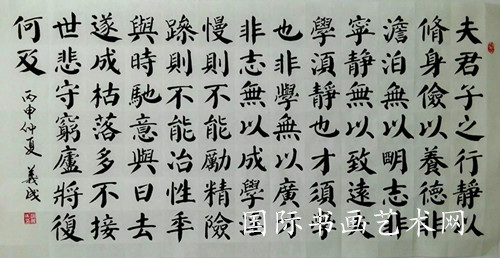 夫君子之行靜以
脩身儉以養德非
澹泊無以明志非
寧靜無以致遠夫
學湏靜也才須學
也非學無以廣才
非志無以成學
慢則不能勵精險
躁則不能治性秊
與時馳意與日去
遂成枯落多不接
世悲守窮廬將復
何及
丙申仲夏 義成
国际书画艺术网